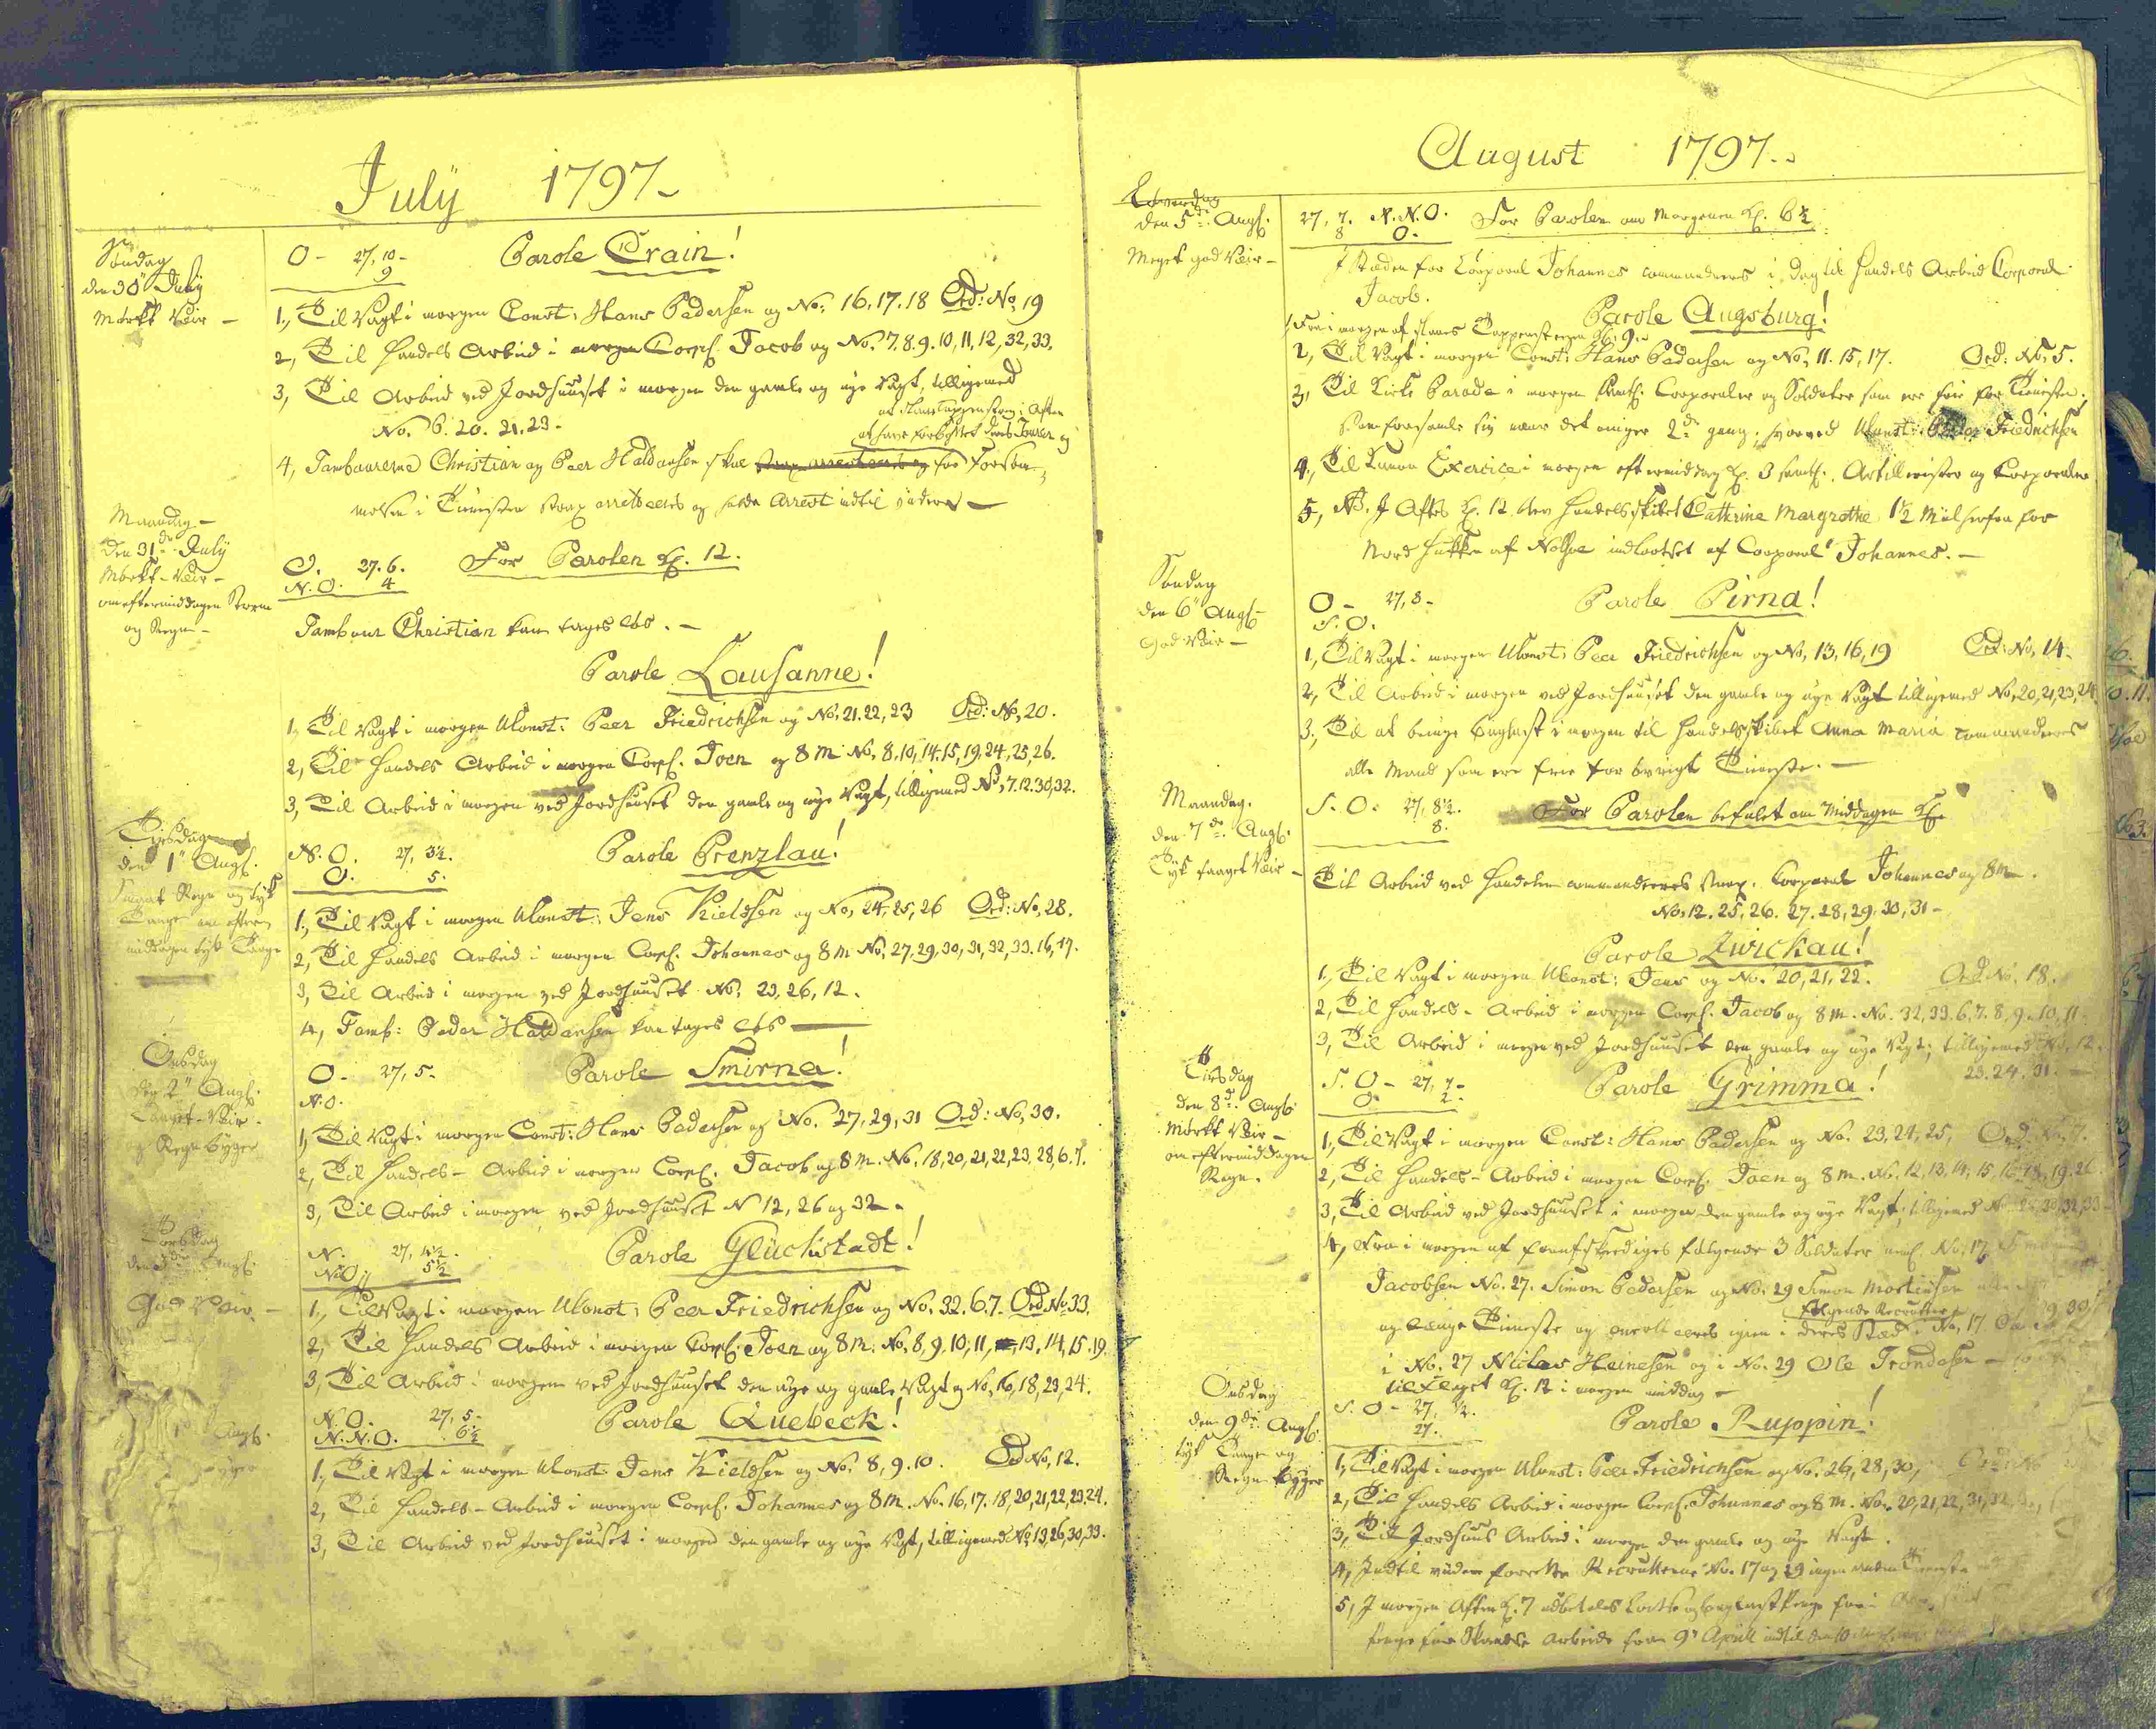 July 1797
Søndag
den 30' July
Mørkt Veir
O - 27, 10 -
9
Parole Crain!
1, Til Vagt i morgen Const: Hans Pedersen og No. 16. 17. 18 Ord: No. 19
2, Til Handels Arbeid i morgen Corpl. Jacob og No. 7. 8. 9. 10, 11, 12, 32, 33.
3, Til Arbeid ved Jordhuuset i morgen den gamle og nye Vagt, tilligemed
No. 6. 20. 21. 23 -
at slaae Tappenstreg i Aften
at have forbigaaet deres Tourer og
4, Tambourerne Christian og Peer Haldansen skal for Forsøm-
melse i Tienesten strax arresteres og holde Arrest indtil videre
Maandag -
Den 31de July
Mørkt - Veir -
om eftermiddagen Storm
og Regn -
O. 27. 6.
N. O. 4
For Parolen Kl. 12.
Tambour Christian kan tages løs. -
Parole Lausanne!
1, Til Vagt i morgen UConst: Peer Friedrichsen og No. 21. 22, 23 Ord: No. 20.
2, Til Handels Arbeid i morgen Corpl. Joen og 8 M No. 8. 10, 14. 15, 19. 24, 25, 26.
3, Til Arbeid i morgen ved Jordhuuset den gamle og nye Vagt, tilligemed No. 7. 12. 30, 32.
Tirsdag
den 1' Augl.
Regn og tyk
Taage om efter
middagen tyk Taage
N. O. 27, 3½.
O. 5.
Parole Prenzlau!
1, Til Vagt i morgen UConst: Jens Kielssen og No. 24, 25, 26 Ord: No. 28.
2, Til Handels Arbeid i morgen Corpl. Johannes og 8 M No. 27. 29, 30, 31, 32, 33. 16, 17.
3, Til Arbeid i morgen ved Jordhuuset No. 23, 26, 12.
4, Tamb: Peder Haldansen kan tages løs
Onsdag
den 2' Augl.
Veir -
Regn byger
O - 27, 5 -
N. O.
Parole Smirna!
1, Til Vagt i morgen Const: Hans Pedersen og No. 27, 29, 31 Ord: No. 30.
2, Til Handels - Arbeid i morgen Corpl. Jacob og 8 M. No. 18, 20, 21, 22, 23, 28, 6. 7.
3, Til Arbeid i morgen ved Jordhuuset N 12, 26 og 32.
Torsdag
den 3die Augl.
God Veir -
N. 27, 4½.
N. O. 5½
Parole Glückstadt!
1, Til Vagt i morgen UConst: Peer Friedrichsen og No. 32. 6. 7. Ord. No. 33.
2, Til Handels Arbeid i morgen Corpl. Joen og 8 M. No. 8, 9, 10, 11, 13, 14, 15. 19.
3, Til Arbeid i morgen ved Jordhuuset den nye og gamle Vagt og No. 16, 18, 23, 24.
Augl.
N. O. 27, 5 -
N. N. O. 6½
Parole Quebeck!
1, Til Vagt i morgen UConst: Jens Kielssen og No. 8, 9. 10. Ord No. 12.
2, Til Handels - Arbeid i morgen Corpl. Johannes og 8 M. No. 16, 17. 18, 20, 21, 22, 23. 24.
3, Til Arbeid ved Jordhuuset i morgen den gamle og nye Vagt, tilligemed No. 13, 26, 30, 33.
August 1797.
Løverdag
den 5te Augl.
Meget god Veir -
27, 7. N. N. O.
8 O.
For Parolen om Morgenen Kl. 6½
I Stæden for Corporal Johannes commanderes i Dag til Handels Arbeid Corporal
Jacob.
Parole Augsburg!
1, Fra i morgen af slaaes Tappenstregen Kl. 9.
2, Til Vagt i morgen Const: Hans Pedersen og No. 11. 15, 17. Ord: No. 5.
3, Til Kirke Parade i morgen samtl. Corporaler og Soldater som ere frie for Tieneste,
som forsamle sig naar det ringer 2de gang. hvorved UConst: Friedrichsen
4, Til Canon Exercice i morgen eftermiddag Kl. 3 samtl. Artillerister og Corporaler
5, NB. I Aftes Kl. 12 blev Handelsskibet Cathrine Margrethe 1½ Miil herfra for
Nord Huken af Nolsøe indlodset af Corporal Johannes. -
Søndag
den 6' Augl -
God Veir -
O - 27, 8 -
S. O.
Parole Pirna!
1, Til Vagt i morgen UConst: Peer Friedrichsen og No. 13, 16, 19 Ord: No. 14.
2, Til Arbeid i morgen ved Jordhuuset den gamle og nye Vagt tilligemed No. 20, 21, 23, 24
3, Til at bringe Baglast i morgen til Handelsskibet Anna Maria commanderes
alle Mand som ere frie for øvrigt Tieneste. -
Maandag.
den 7de Augl.
Tyk taaget Veir -
S. O. 27, 8½.
8.
For Parolen befalet om Middagen Kl.
Til Arbeid ved Handelen commanderes strax, Corporal Johannes og 8 M.
No. 12. 25, 26. 27. 28, 29, 30, 31 -
Parole Zwickau!
1, Til Vagt i morgen UConst: Jens og No. 20, 21, 22. Ord. No. 18.
2, Til Handels - Arbeid i morgen Corpl. Jacob og 8 M. No. 32, 33. 6. 7. 8, 9. 10, 11
3, Til Arbeid i morgen ved Jordhuuset den gamle og nye Vagt, tilligemed No. 12.
23. 24. 31.
Tirsdag
den 8de Augl.
Mørkt Veir -
om eftermiddagen
Regn.
S. O - 27, 7 -
O - 2 -
Parole Grimma!
1, Til Vagt i morgen Const: Hans Pedersen og No. 23, 24, 25, Ord: No. 7.
2, Til Handels - Arbeid i morgen Corpl. Joen og 8 M. No. 12, 13, 14, 15, 16, 18, 19. 26
3, Til Arbeid ved Jordhuuset i morgen den gamle og nye Vagt, tilligemed No. 30, 32, 33
4, Fra i morgen af følgende 3 Soldater neml. No. 17
Jacobsen No. 27. Simon Pedersen og No. 29 Simon Mortensen
følgende Recrutter
og lange Tieneste og enrolleres igien i deres Stæd i No. 17
i No. 27 Niclas Heinesen og i No. 29 Ole Trondesen
Kl. 12 i morgen middag
Onsdag
den 9de Augl.
tyk Taage og
Regn Byger
S. O - 27, ½.
27.
Parole Ruppin!
1, Til Vagt i morgen UConst: Peer Friedrichsen og No. 26, 28, 30,
2, Til Handels Arbeid i morgen Corpl. Johannes og 8 M. No. 20, 21, 22, 31, 32,
3, Til Jordhuus Arbeid i morgen den gamle og nye Vagt.
4, Indtil videre forrette Recrutterne No. 17 og 29 ingen anden Tieneste
5, I morgen Aften Kl. 7 udbetales
penge for Skandse Arbeide fra 9' April indtil den 10